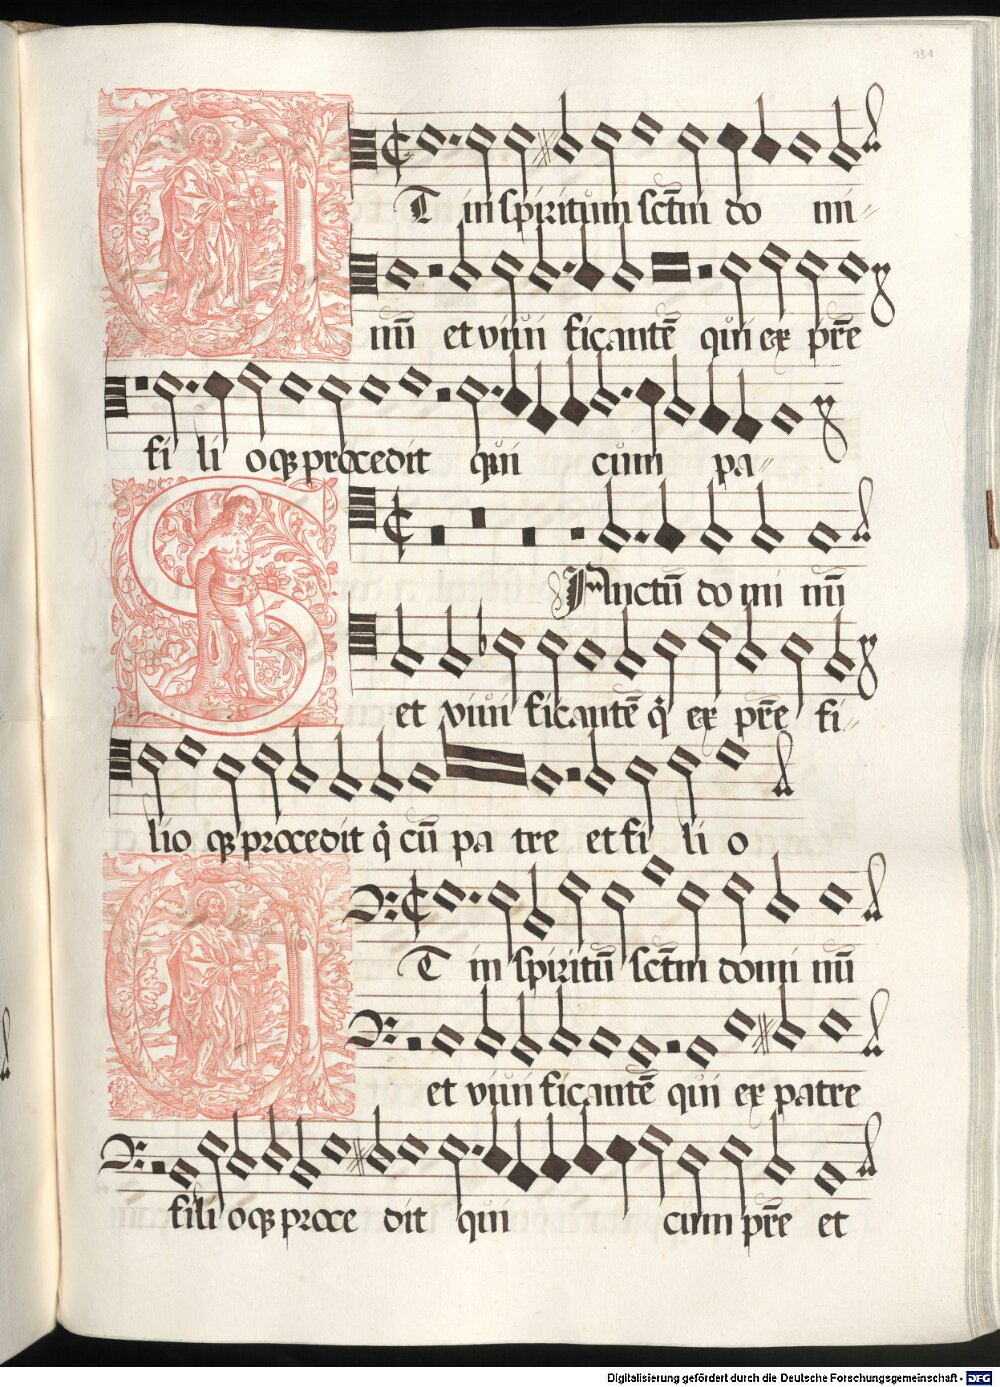 131
T in spiritum sctm do mi
nū et vivi ficantē qui ex pr̄e
fi li oqȝ procedit qui cum pa
Sanctū do mi nū
et vivi ficantē q̇ ex pr̄e fi
lio qȝ procedit q̇ cū pa tre et fi li o
T in spiritū sctm domi nū
et vivi ficantē qui ex patre
fili oqȝ proce dit qui cum pr̄e et
Digitalisierung gefördert durch die Deutsche Forschungsgemeinschaft - DFG